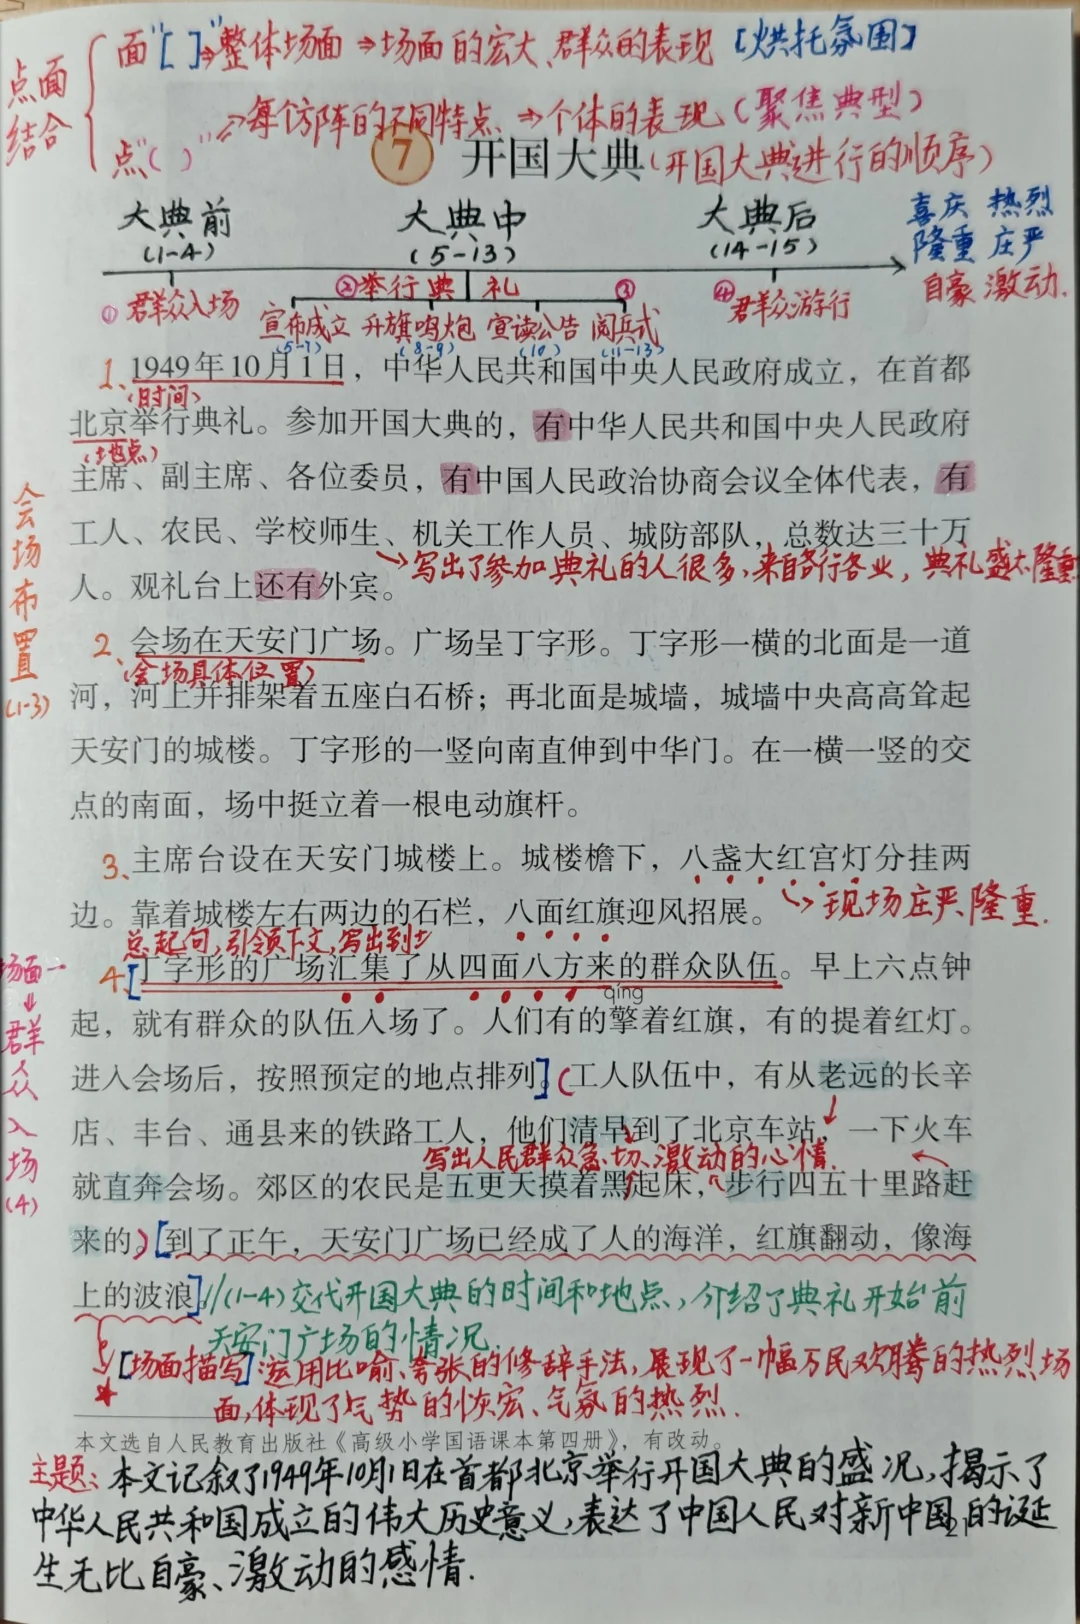 点面结合
面"[ ]"⇒整体场面⇒场面的宏大、群众的表现【烘托氛围】
点"( )"⇒每个方阵的不同特点⇒个体的表现(聚焦典型)
7 开国大典(开国大典进行的顺序)
大典前 大典中 大典后
(1-4) (5-13) (14-15)
喜庆 热烈
隆重 庄严
自豪 激动.
①群众入场 ②举行典礼 ③ ④群众游行
宣布成立 升旗鸣炮 宣读公告 阅兵式
(5-7) (8-9) (10) (11-13)
1、1949年10月1日，中华人民共和国中央人民政府成立，在首都
(时间)
北京举行典礼。参加开国大典的，有中华人民共和国中央人民政府
(地点)
主席、副主席、各位委员，有中国人民政治协商会议全体代表，有
工人、农民、学校师生、机关工作人员、城防部队，总数达三十万
写出了参加典礼的人很多，来自各行各业，典礼盛大隆重
人。观礼台上还有外宾。
会场布置
(1-3)
2、会场在天安门广场。广场呈丁字形。丁字形一横的北面是一道
(会场具体位置)
河，河上并排架着五座白石桥；再北面是城墙，城墙中央高高耸起
天安门的城楼。丁字形的一竖向南直伸到中华门。在一横一竖的交
点的南面，场中挺立着一根电动旗杆。
3、主席台设在天安门城楼上。城楼檐下，八盏大红宫灯分挂两
边。靠着城楼左右两边的石栏，八面红旗迎风招展。
现场庄严、隆重.
总起句，引领下文，写出到
场面一
群众入场
(4)
4、[丁字形的广场汇集了从四面八方来的群众队伍。早上六点钟
qíng
起，就有群众的队伍入场了。人们有的擎着红旗，有的提着红灯。
进入会场后，按照预定的地点排列]。(工人队伍中，有从老远的长辛
店、丰台、通县来的铁路工人，他们清早到了北京车站，一下火车
写出人民群众急切、激动的心情.
就直奔会场。郊区的农民是五更天摸着黑起床，步行四五十里路赶
来的。)[到了正午，天安门广场已经成了人的海洋，红旗翻动，像海
上的波浪]。//(1-4)交代开国大典的时间和地点，介绍了典礼开始前
天安门广场的情况
[场面描写]：运用比喻、夸张的修辞手法，展现了一幅万民欢腾的热烈场
面，体现了气势的恢宏、气氛的热烈.
本文选自人民教育出版社《高级小学国语课本第四册》，有改动。
主题：本文记叙了1949年10月1日在首都北京举行开国大典的盛况，揭示了
中华人民共和国成立的伟大历史意义，表达了中国人民对新中国的诞
生无比自豪、激动的感情.